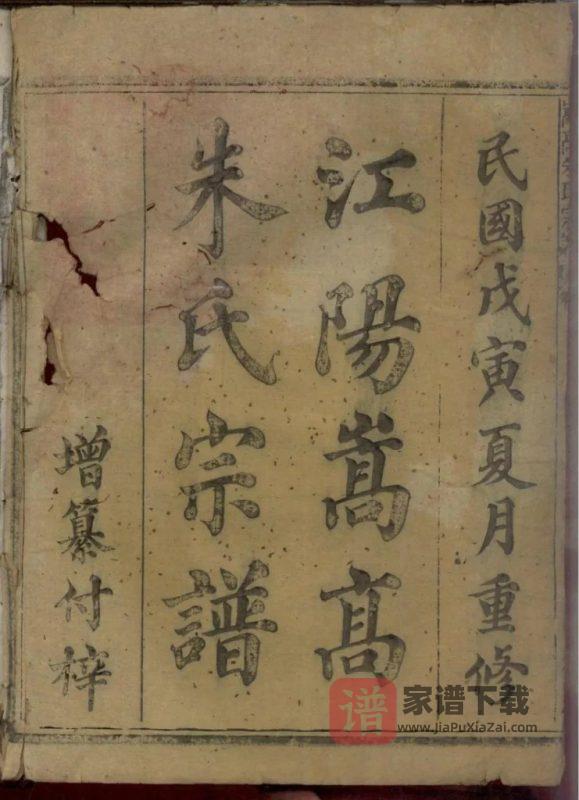 民國戊寅夏月重修
江陽嵩髙
朱氏宗譜
增纂付梓
谱
家谱下载
www.JiaPuXiaZai.com